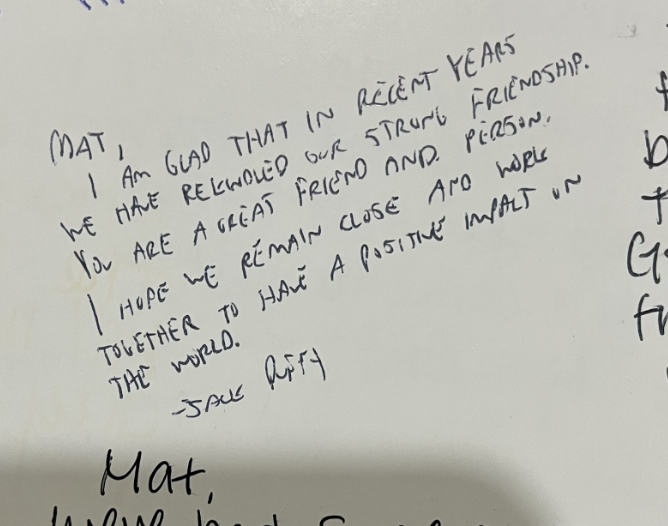 MAT,
I AM GLAD THAT IN RECENT YEARS
WE HAVE REKINDLED OUR STRONG FRIENDSHIP.
YOU ARE A GREAT FRIEND AND PERSON.
I HOPE WE REMAIN CLOSE AND WORK
TOGETHER TO HAVE A POSITIVE IMPACT ON
THE WORLD.
-JACK DUFFY
Mat,